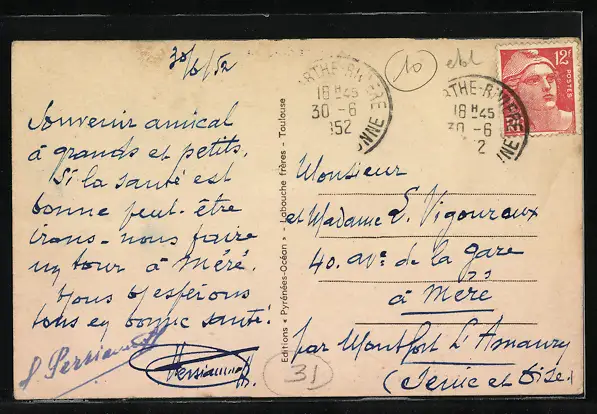 30/6/52
Souvenir amical
à grands et petits.
Si la santé est
bonne peut-être
irons-nous faire
un tour à Méré.
Nous v/espérons
tous en bonne santé.
Editions « Pyrénées-Océan » - Labouche frères - Toulouse
10
RTHE-RIVIERE
18 H 45
30 -6
952
ONNE
RTHE-RIVIERE
18 H 45
30 -6
2
NNE
12F
POSTES
Monsieur
et Madame L. Vigouroux
40. ave de la gare
à Méré
par Montfort L'Amaury
(Seine et Oise.)
31